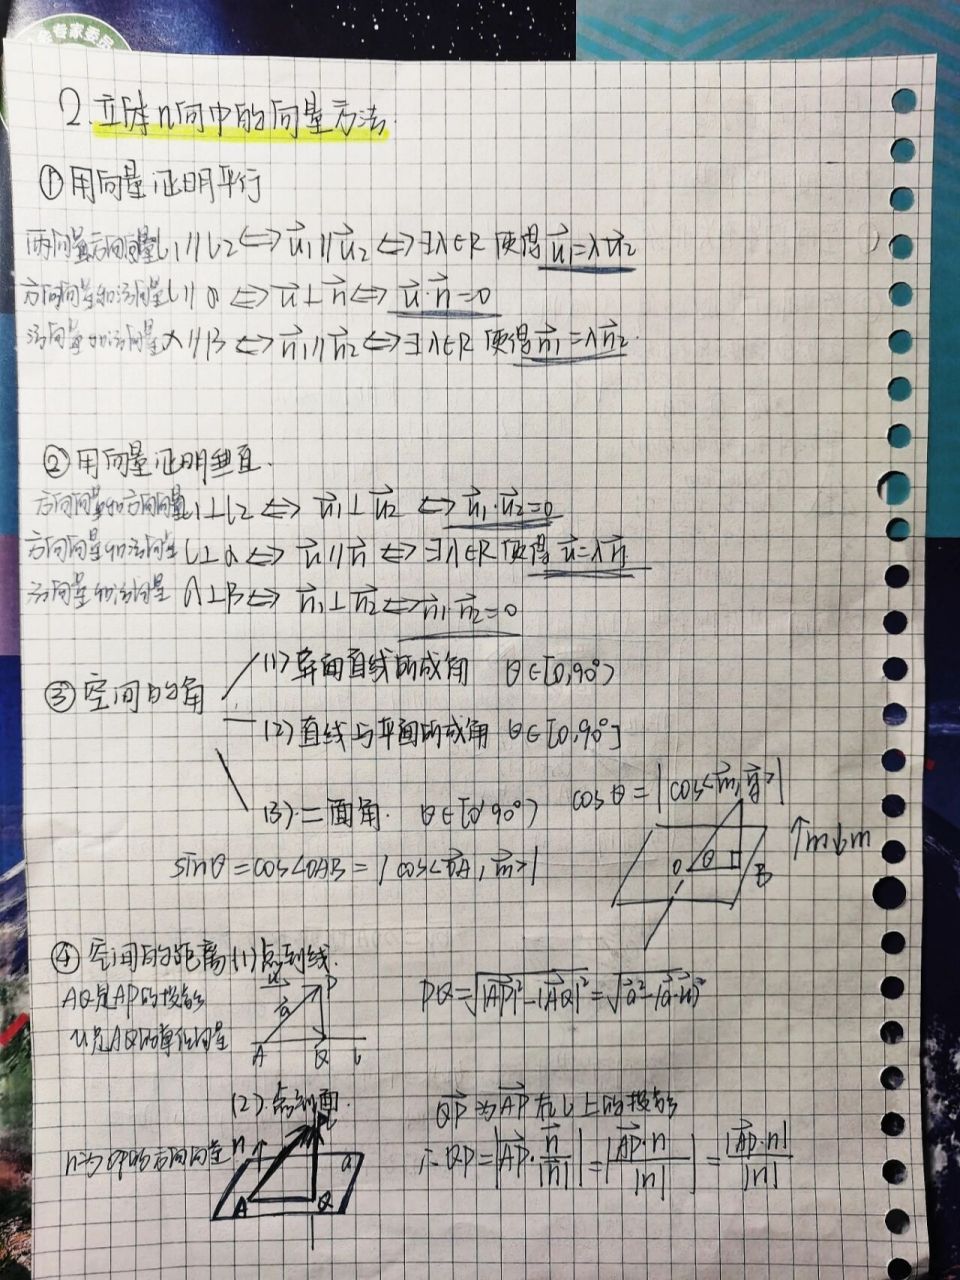 全专家委员
2.立体几何中的向量方法.
①用向量证明平行
两向量方向向量 l₁∥l₂⇔u⃗₁∥u⃗₂⇔∃λ∈R 使得u⃗₁=λu⃗₂
方向向量和法向量l∥α⇔u⃗⊥n⃗⇔u⃗·n⃗=0
法向量和法向量α∥β⇔n⃗₁∥n⃗₂⇔∃λ∈R 使得n⃗₁=λn⃗₂.
②用向量证明垂直.
方向向量和方向向量l₁⊥l₂⇔u⃗₁⊥u⃗₂⇔u⃗₁·u⃗₂=0
方向向量和法向量 l⊥α⇔u⃗∥n⃗⇔∃λ∈R使得u⃗=λn⃗.
法向量和法向量 α⊥β⇔n⃗₁⊥n⃗₂⇔n⃗₁·n⃗₂=0
③空间的角
(1)异面直线所成角 θ∈[0,90°)
(2)直线与平面所成角 θ∈[0,90°]
(3).二面角. θ∈[0,90°)
cosθ=|cos<m⃗,n⃗>|
sinθ=cos∠OAB=|cos<O⃗A,m⃗>|
O θ B
↑m↓m
④空间的距离(1)点到线.
AQ是AP的投影
u是AQ的单位向量
u⃗ a⃗ P A Q l
PQ=√|A⃗P|²-|A⃗Q|²=√a⃗²-(a⃗·u⃗)²
(2).点到面.
n为QP的方向向量
n P α A Q l
Q⃗P为A⃗P在l上的投影
∴QP=|A⃗P·n⃗/|n⃗||=|A⃗P·n/|n||=|A⃗P·n|/|n|